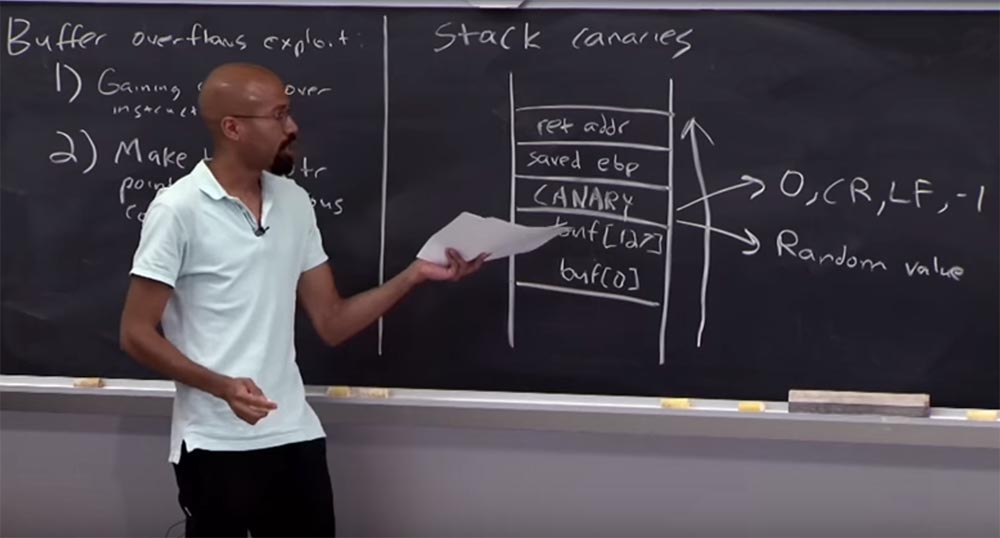 Buffer overflows exploit:
1) Gaining over
instruct
2) Make
point
Stack canaries
ret addr
saved ebp
CANARY
buf[127]
buf[0]
0, CR, LF, -1
Random value